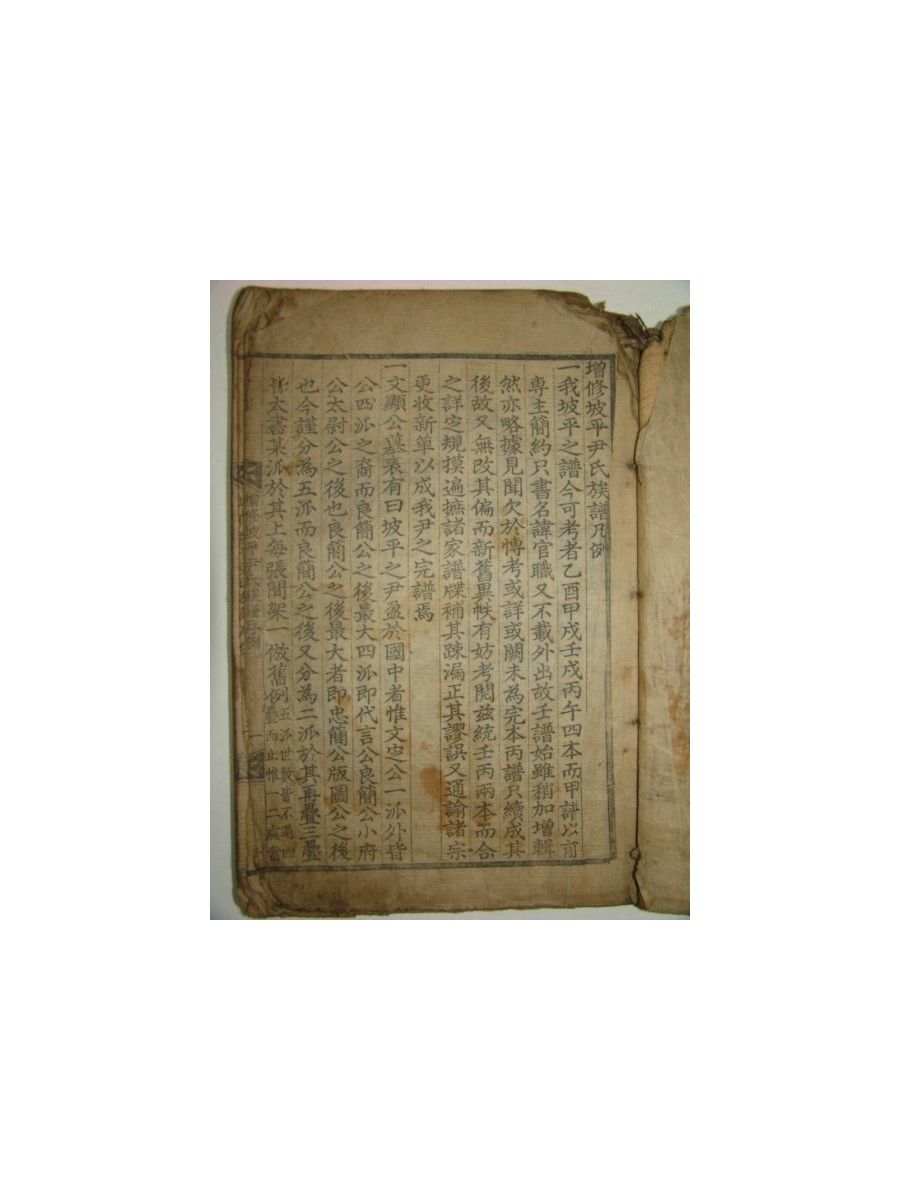 增修坡平尹氏族譜凡例
一我坡平之譜今可考者乙酉甲戌壬戌丙午四本而甲譜以前
專主簡約只書名諱官職又不載外出故壬譜始雖稍加增輯
然亦略據見聞欠於博考或詳或闕未為完本丙譜只續成其
後故又無改其偏而新舊異帙有妨考閱玆統壬丙兩本而合
之詳定規摸遍摭諸家譜牒補其踈漏正其謬誤又通諭諸宗
更收新单以成我尹之完譜焉
一文顯公墓表有曰坡平之尹盈於國中者惟文定公一派外皆
公四派之裔而良簡公之後最大四派即代言公良簡公小府
公太尉公之後也良簡公之後最大者即忠簡公版圖公之後
也今謹分為五派而良簡公之後又分為二派於其再疊三疊
皆大書某派於其上每張間架一倣舊例五派世數皆不過四
疊而止惟一二處當
增修坡平尹氏族譜凡例
一